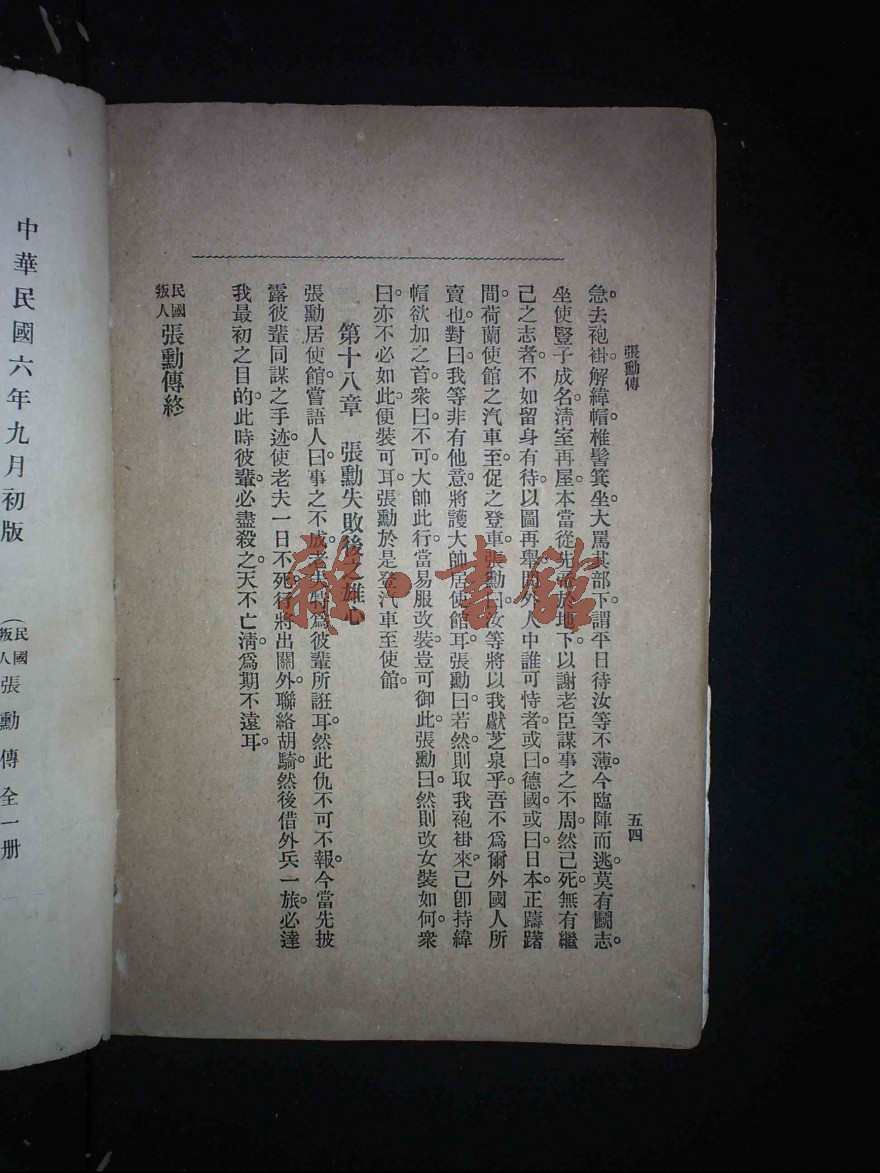 張勳傳
五四
急。去袍褂。解緯帽。椎髻箕坐。大罵其部下。謂平日待汝等不薄。今臨陣而逃。莫有鬭志。
坐使豎子成名。淸室再屋。本當從先帝於地下。以謝老臣謀事之不周。然己死。無有繼
己之志者。不如留身有待。以圖再舉。問外人中誰可恃者。或曰德國。或曰日本。正躊躇
間。荷蘭使館之汽車至。促之登車。張勳曰。汝等將以我獻芝泉乎。吾不爲爾外國人所
賣也。對曰。我等非有他意。將護大帥居使館耳。張勳曰。若然。則取我袍褂來。己卽持緯
帽欲加之首。衆曰。不可。大帥此行。當易服改裝。豈可御此。張勳曰。然則改女裝如何。衆
曰。亦不必如此。便裝可耳。張勳於是登汽車至使館。
第十八章　張勳失敗後之雄心
張勳居使館。嘗語人曰。事之不成。老夫特爲彼輩所誑耳。然此仇不可不報。今當先披
露彼輩同謀之手迹。使老夫一日不死。行將出關外。聯絡胡騎。然後借外兵一旅。必達
我最初之目的。此時彼輩。必盡殺之。天不亡淸。爲期不遠耳。
民國叛人張勳傳終
中華民國六年九月初版
(民國叛人張勳傳全一册
雜·書館